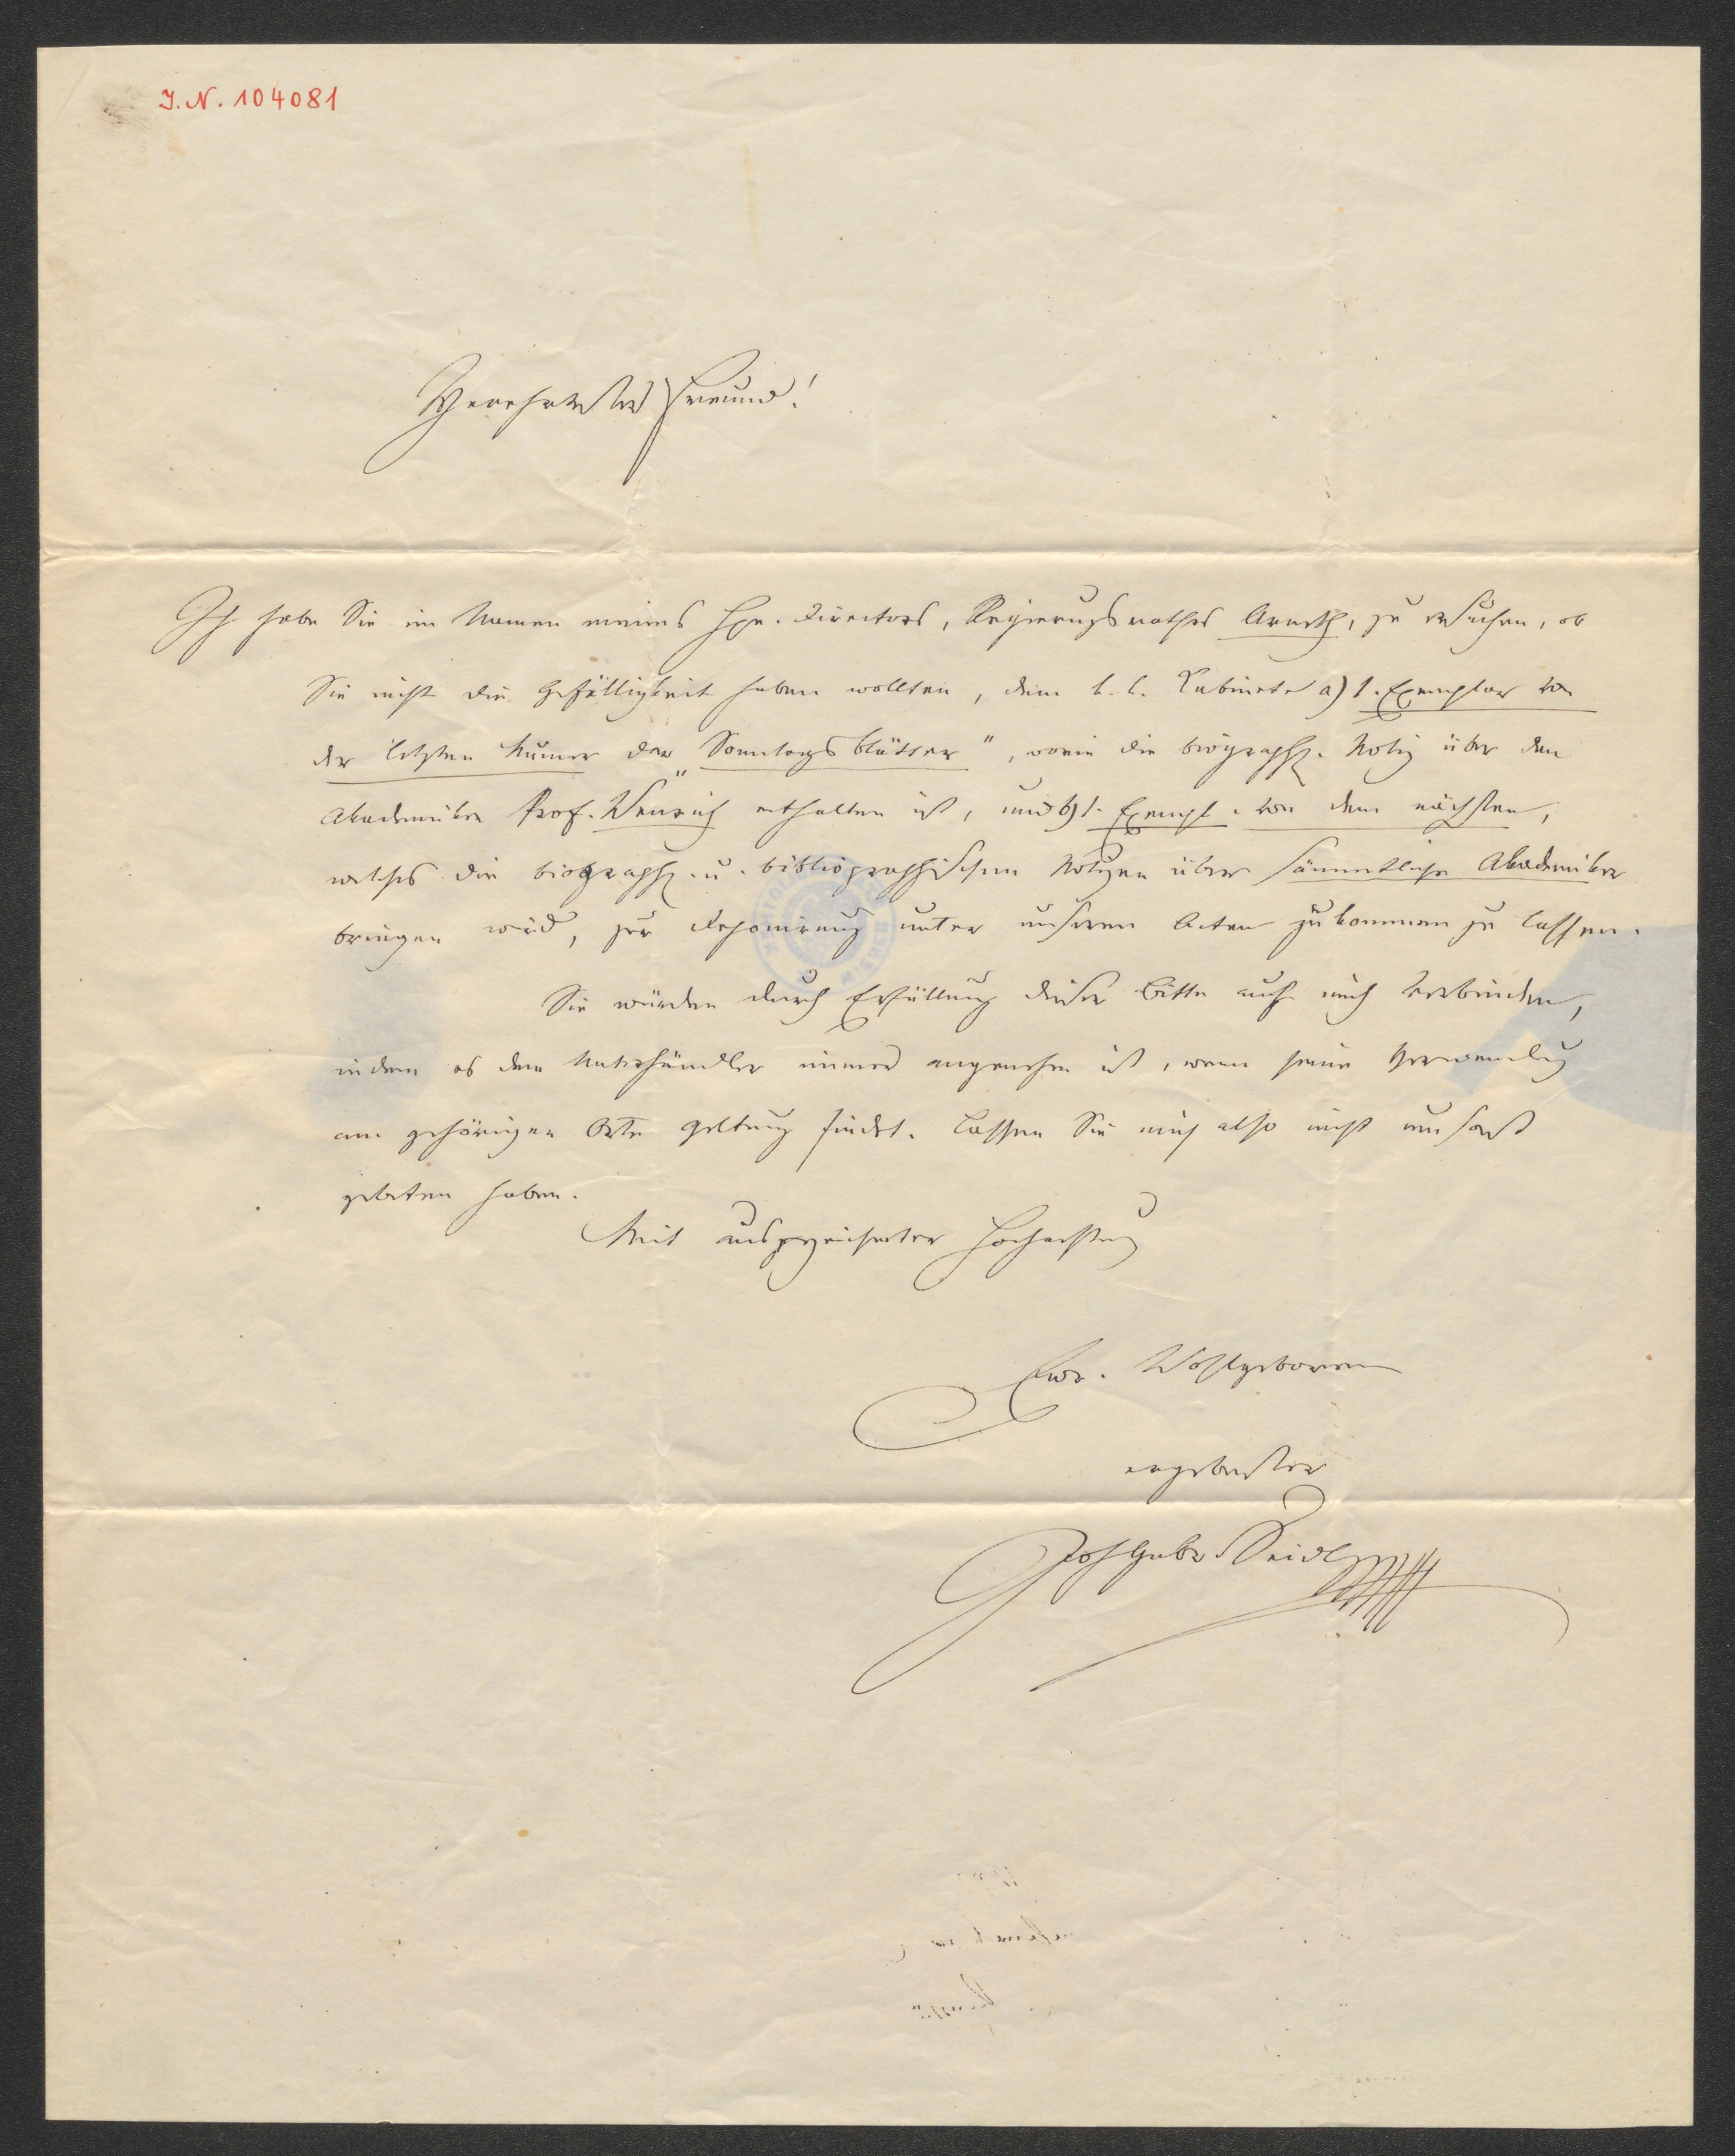 J.N. 104081
Verehrtester Freund!
Ich habe Sie im Namen meines Hrn. Directors, Regierungsrathes Arneth, zu ersuchen, ob
Sie nicht die Gefälligkeit haben wollten, dem k. k. Kabinete a) 1. Exemplar von
der letzten Numer der „Sonntagsblätter", worin die biographh. Notiz über den
Akademiker Prof. Wenrich enthalten ist, und b) 1. Exempl. von dem nächsten,
welches die biographh. u. bibliographischen Notizen über sämmtliche Akademiker
bringen wird, zur Deponirung unter unseren Acten zukommen zu lassen.
Sie würden durch Erfüllung dieser Bitte auch mich verbinden,
indem es dem Unterhändler immer angenehm ist, wenn seine Verwendung
am gehörigen Orte Geltung findet. Lassen Sie mich also nicht umsonst
gebeten haben.
Mit ausgezeichneter Hochachtung
Euer. Wohlgeboren
ergebenster
Joh Gabr. Seidl